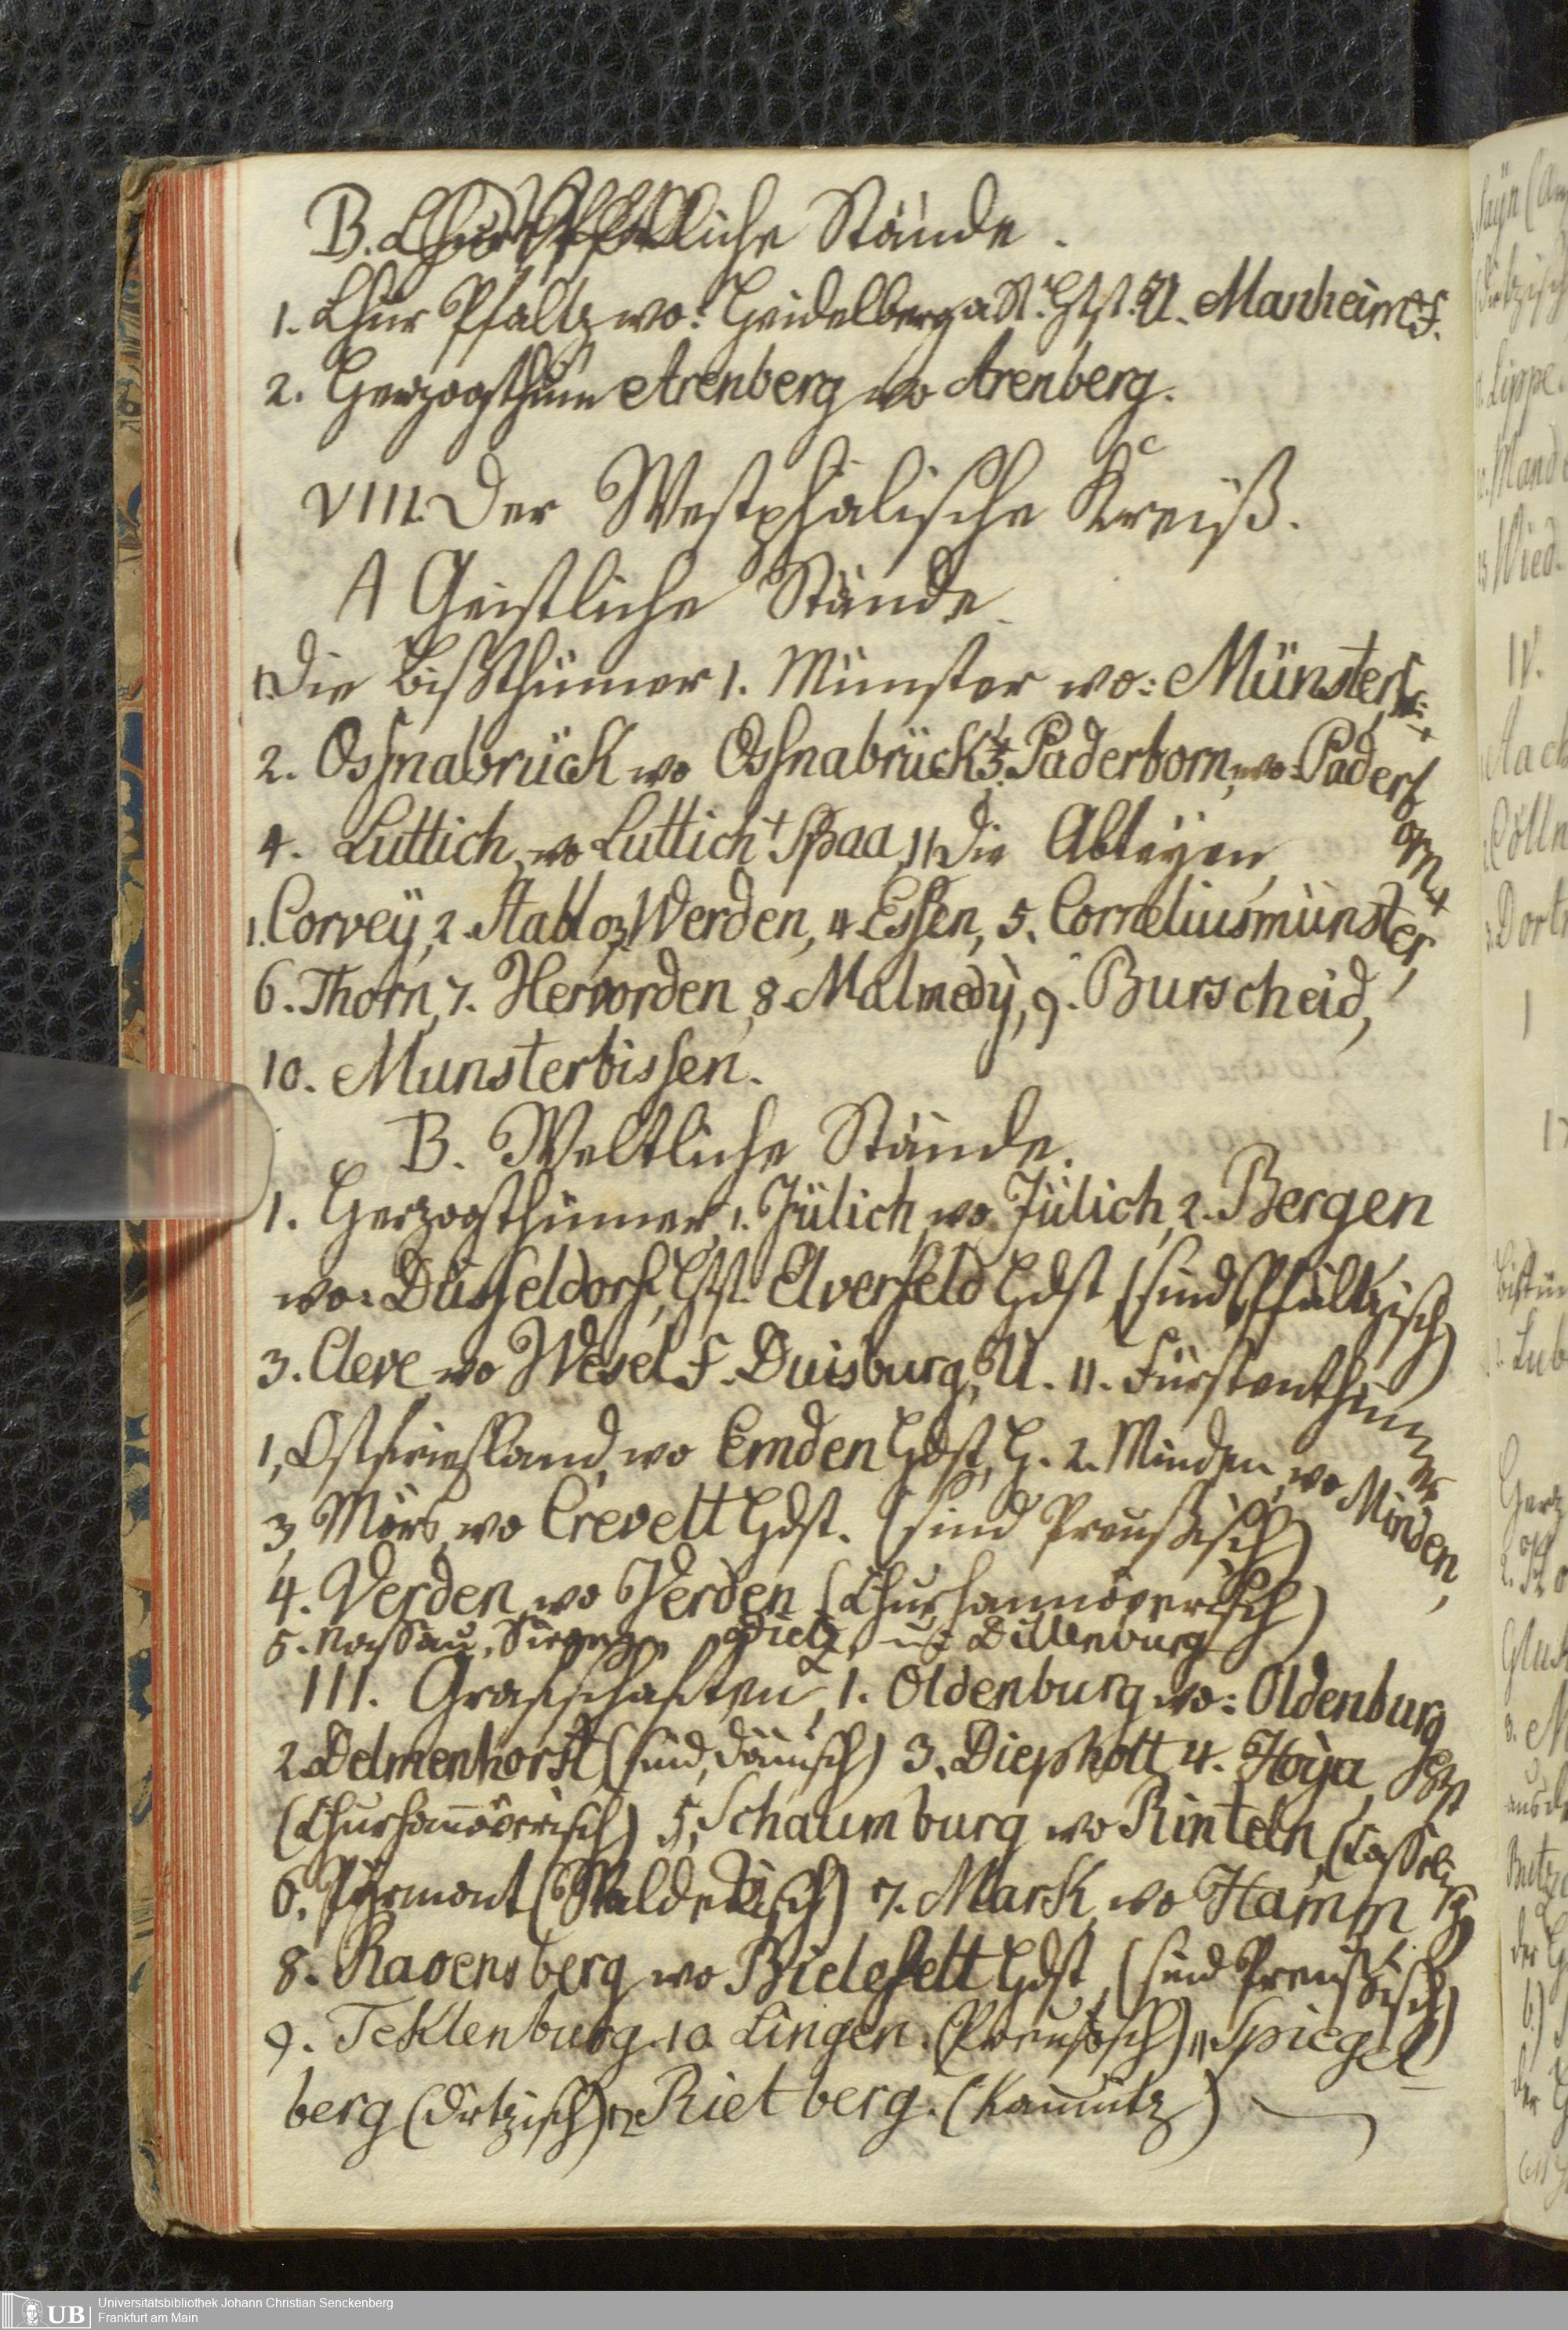 B. Weltliche Stände.
1. Chur Pfaltz wo: Heidelberg a St. Hst. U. Manheim F.
2. Herzogthum Arenberg wo Arenberg.
VIII. Der Westphälische Kreiß.
A Geistliche Stände
I. Die Bißthümer 1. Münster wo: Münster,
2. Osnabrück wo Osnabrück 3. Paderborn, wo: Paderborn
4. Luttich, wo Luttich † Spaa, II Die Abteyen,
1. Corvey, 2. Stablo 3, Werden, 4 Essen, 5. Corneliusmünster,
6. Thorn, 7. Hervorden, 8. Malmedy, 9. Burscheid,
10. Munsterbissen.
B. Weltliche Stände.
1. Herzogthümer, 1. Jülich, wo Jülich, 2. Bergen
wo: Düsseldorf, Hst. Elverfeld Hdst (sind Pfältzisch)
3. Cleve, wo Wesel F. Duisburg, U. II. Fürstenthümer
1, Ostfriesland, wo Emden Hdst, H. 2. Minden, wo Minden,
3, Mörs, wo Crevelt Hdst. (sind Preußisch)
4. Verden, wo Verden (Churhannöverisch)
5. Nassau, Siegen Dietz, u. Dillenburg
III. Grafschaften, 1. Oldenburg wo: Oldenburg
2. Delmenhorst (sind, dänisch) 3. Diepholt 4. Hoya,
(Churhannöverisch) 5, Schaumburg wo Rinteln, (Cassel
6. Pyrmont (Waldekisch) 7. Mark, wo Hamm
8. Ravensberg wo Bielefelt Hdst, (sind Preußisch)
9. Teklenburg. 10 Lingen. (Preusisch) 11 Spiegel
berg (Dietzisch) 12 Rietberg. (Kaunitz)
Universitätsbibliothek Johann Christian Senckenberg
Frankfurt am Main
UB